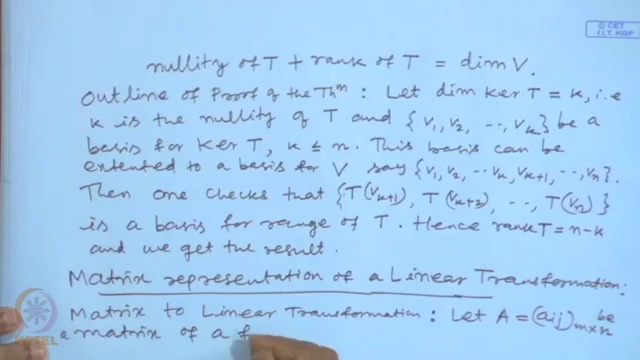 © CET
I.I.T. KGP
nullity of T + rank of T = dim V.
Outline of Proof of the Thᵐ : Let dim ker T = k, i.e
k is the nullity of T and {v₁, v₂, ⋯, vₖ} be a
basis for Ker T, k ≤ n. This basis can be
extented to a basis for V say {v₁, v₂, ⋯ vₖ, vₖ₊₁, ⋯, vₙ}.
Then one checks that {T(vₖ₊₁), T(vₖ₊₂), ⋯, T(vₙ)}
is a basis for range of T. Hence rank T = n-k
and we get the result.
Matrix representation of a Linear Transformation:
Matrix to Linear Transformation : Let A = (aij)m×n be
a matrix of a f